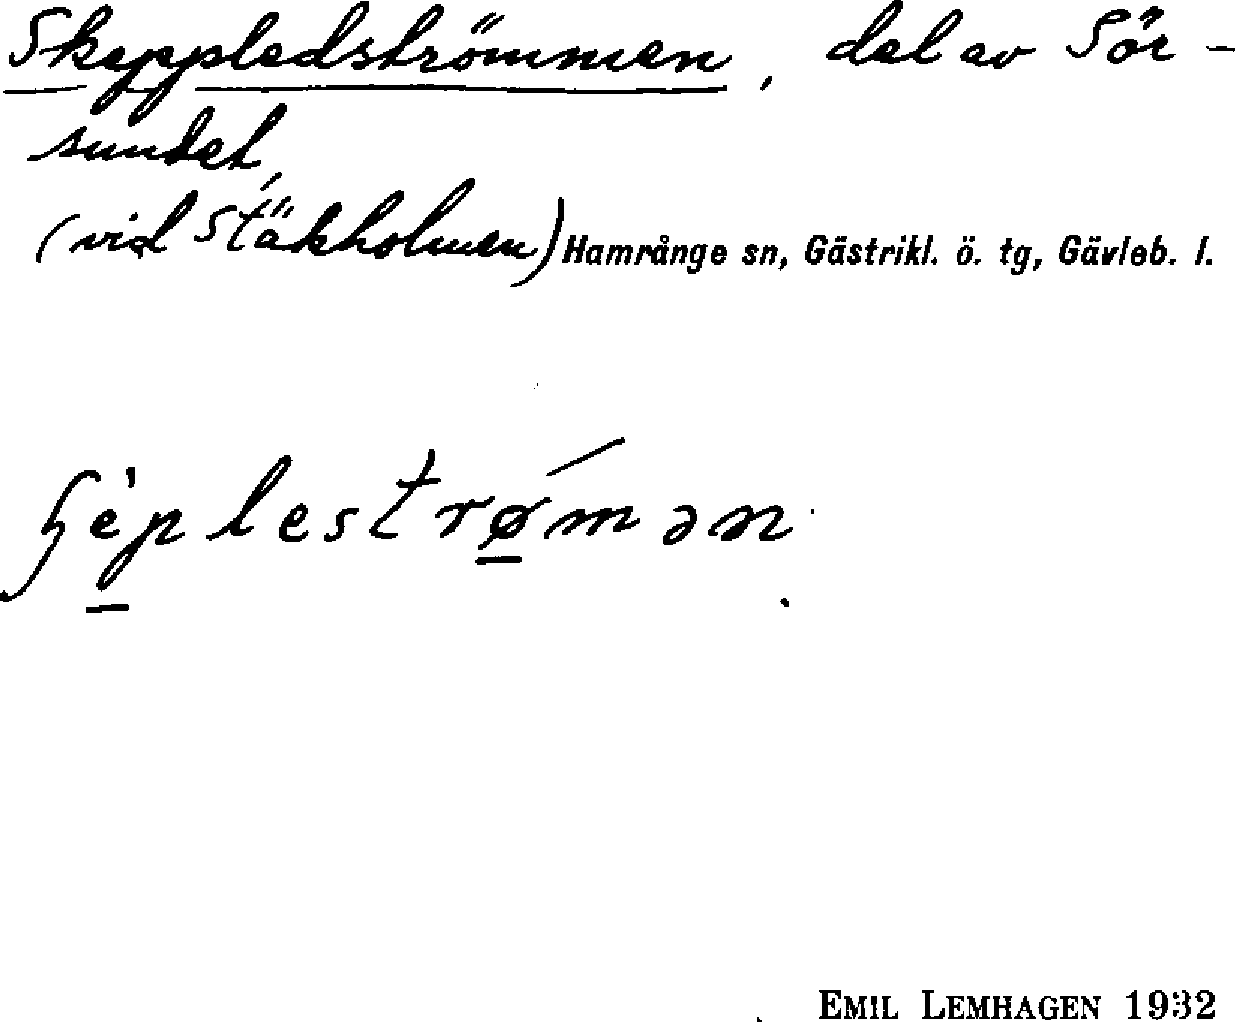 Skeppledströmmen, del av Sör-
sundet,
(vid Stäkholmen) Hamrånge sn, Gästrikl. ö. tg, Gävleb. l.
ɧèplestrǿmən.
EMIL LEMHAGEN 1932